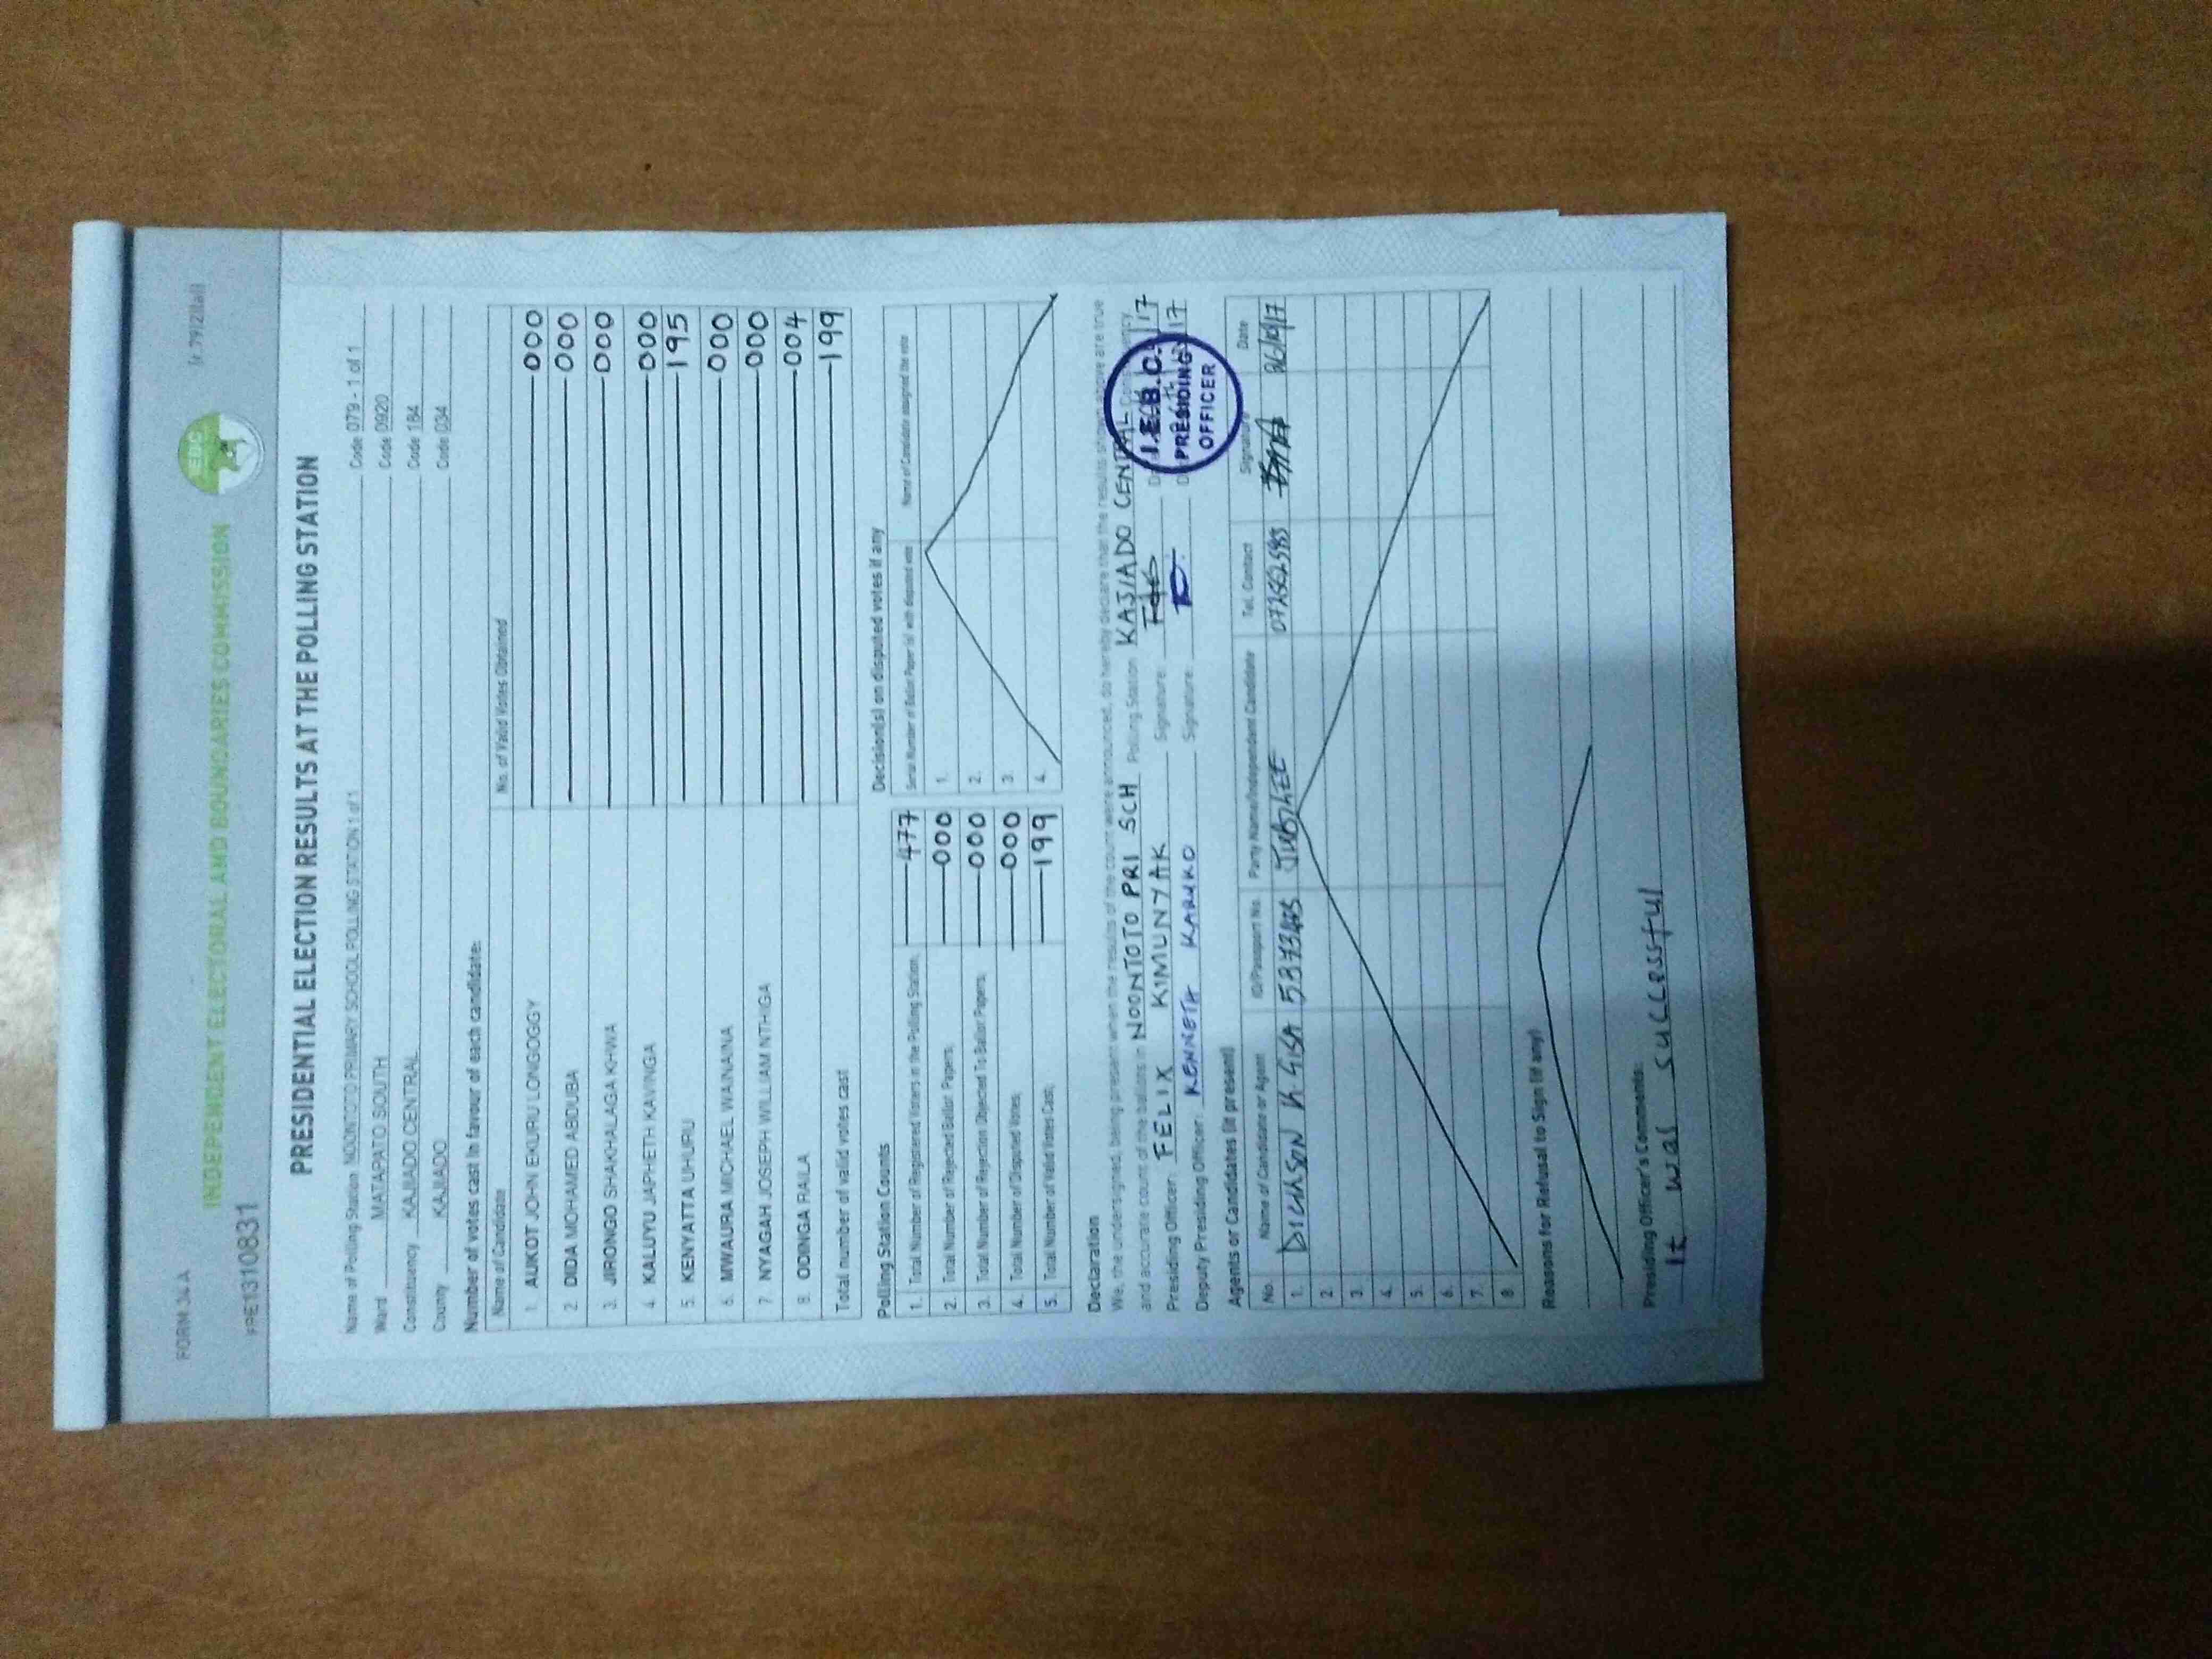 FORM 34 A
(r.79)(2)(a))
FPE1310831
IEBC
INDEPENDENT ELECTORAL AND BOUNDARIES COMMISSION
PRESIDENTIAL ELECTION RESULTS AT THE POLLING STATION
Name of Polling Station NOONTOTO PRIMARY SCHOOL POLLING STATION 1 of 1 Code 079 - 1 of 1
Ward MATAPATO SOUTH Code 0920
Constituency KAJIADO CENTRAL Code 184
County KAJIADO Code 034
Number of votes cast in favour of each candidate:
Name of Candidate No. of Valid Votes Obtained
1. AUKOT JOHN EKURU LONGOGGY 000
2. DIDA MOHAMED ABDUBA 000
3. JIRONGO SHAKHALAGA KHWA 000
4. KALUYU JAPHETH KAVINGA 000
5. KENYATTA UHURU 195
6. MWAURA MICHAEL WAINAINA 000
7. NYAGAH JOSEPH WILLIAM NTHIGA 000
8. ODINGA RAILA 004
Total number of valid votes cast 199
Polling Station Counts
1. Total Number of Registered Voters in the Polling Station; 477
2. Total Number of Rejected Ballot Papers; 000
3. Total Number of Rejection Objected To Ballot Papers; 000
4. Total Number of Disputed Votes; 000
5. Total Number of Valid Votes Cast; 199
Decision(s) on disputed votes if any
Serial Number of Ballot Paper (s) with disputed vote Name of Candidate assigned the vote
1.
2.
3.
4.
Declaration
We, the undersigned, being present when the results of the count were announced, do hereby declare that the results shown above are true
and accurate count of the ballots in NOONTOTO PRI SCH Polling Station KAJIADO CENTRAL Constituency
Presiding Officer: FELIX KIMUNYAK Signature: 17
Deputy Presiding Officer: KENNETH KARUKO Signature: 17
I.E.B.C.
PRESIDING
OFFICER
Agents or Candidates (if present)
No. Name of Candidate or Agent ID/Passport No. Party Name/Independent Candidate Tel. Contact Signature Date
1. DICKSON K. JUBILEE 26/10/17
2.
3.
4.
5.
6.
7.
8.
Reasons for Refusal to Sign (if any)
Presiding Officer's Comments:
It was successful